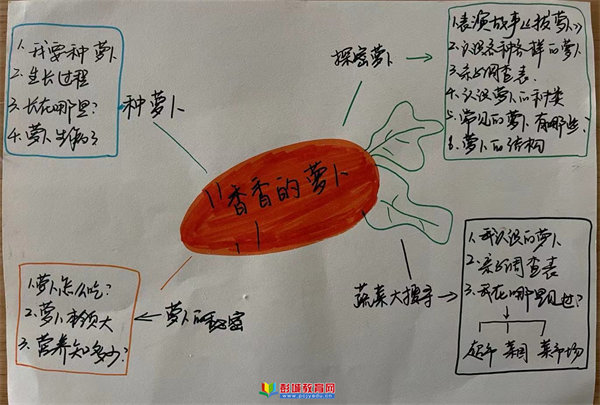 香香的萝卜
种萝卜
1. 我要种萝卜
2. 生长过程
3. 长在哪里?
4. 萝卜生病了
探密萝卜
1. 表演故事《拔萝卜》
2. 认识各种各样的萝卜
3. 亲子调查表
4. 认识萝卜的种类
5. 常见的萝卜有哪些?
6. 萝卜的结构
萝卜的秘密
1. 萝卜怎么吃?
2. 萝卜本领大
3. 营养知多少?
蔬菜大搜寻
1. 我认识的萝卜
2. 亲子调查表
3. 我在哪里见过?
超市 菜园 菜市场
彭城教育网
www.pcjyedu.cn